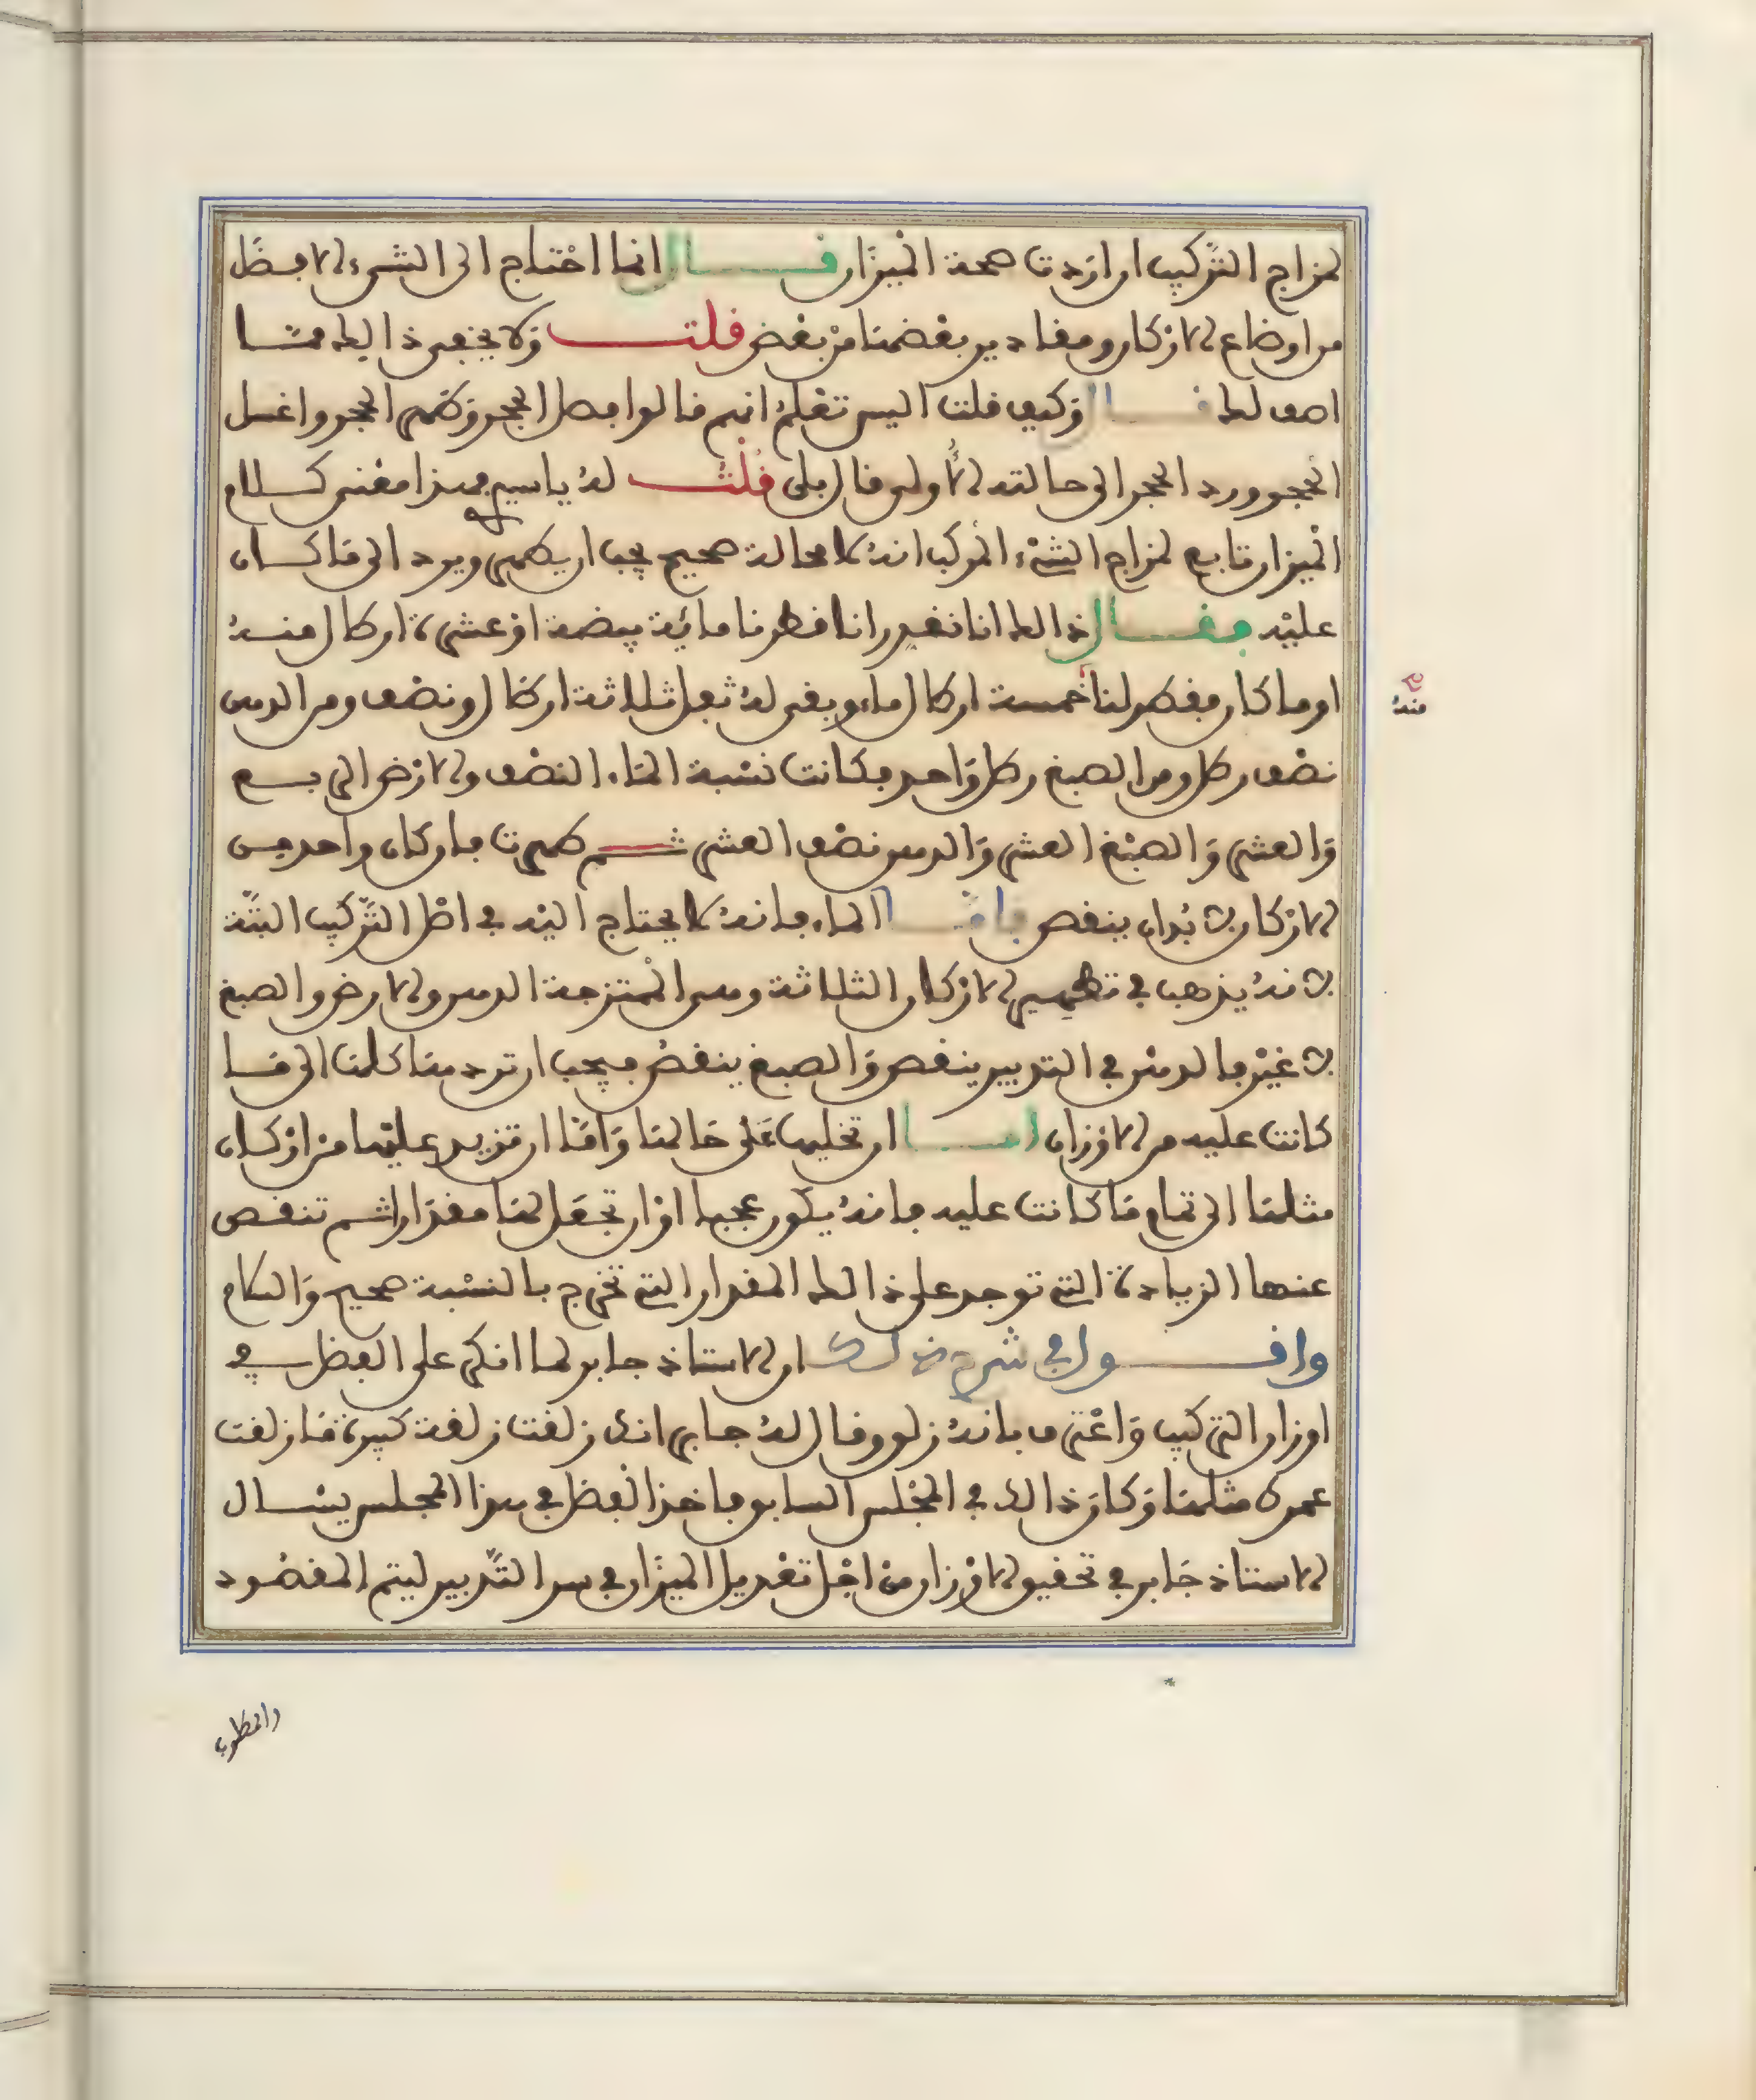 لمزاج التركيب ان اردت صحة الميزان قال انما احتاج الى الشيء الافضل
من اوضاع الاركان ومقادير بعضها من بعض قلت وكيف يخفى ذالك مما
اصف لك قال وكيف قلت اليس تعلم انهم قالوا افصل الحجر وطهر الحجر واغسل
الحجر ورد الحجر الى حالته الاولى قال بلى قلت له ياسيدي هذا معنى كلام
الميزان تابع لمزاج الشيء المركب انه لا محالة صحيح يجب ان يطهر ويرد الى ما كان
عليه فقال ذالك انا نقدر انا قطرنا ماية بيضة او عشرة ارطال منه
او ما كان فقطر لنا خمسة ارطال ماء وبقى له ثفل ثلاثة ارطال ونصف ومن الدهن
نصف رطل ومن الصبغ رطل واحد فكانت نسبة الماء النصف والارض الربع
والعشر والصبغ العشر والدهن نصف العشر ثم طهرت فاركان واحد من
الاركان لابد ان ينقص فاما الماء فانه لا يحتاج اليه في اصل التركيب البتة
لانه يذهب في تطهير الاركان الثلاثة وهي الممتزجة الدهن والارض والصبغ
لا غير فالدهن في التدبير ينقص والصبغ ينقص فيجب ان تردها كلها الى ما
كانت عليه من الاوزان اما ان تخليها على حالها واما ان تزيد عليها من اركان
مثلها الى تمام ما كانت عليه فانه يكون عجبا او ان تجعل لها مقدارا ثم تنقص
عنها الزيادة التي توجد على ذالك المقدار التي تخرج بالنسبة صحيح والسلام
واقول في شرح ذلك ان الاستاذ جابر لما انكر على الفضل في
اوزان التركيب واعترف بانه زلق وقال له جابر انك زلقت زلقة كبيرة ما زلقت
عمرك مثلها وكان ذالك في المجلس السابق فاخذ الفضل في هذا المجلس يسال
الاستاذ جابر في تحقيق الاوزان من اجل تعديل الميزان في سر التدبير ليتم المقصود
منه
والمطلوب